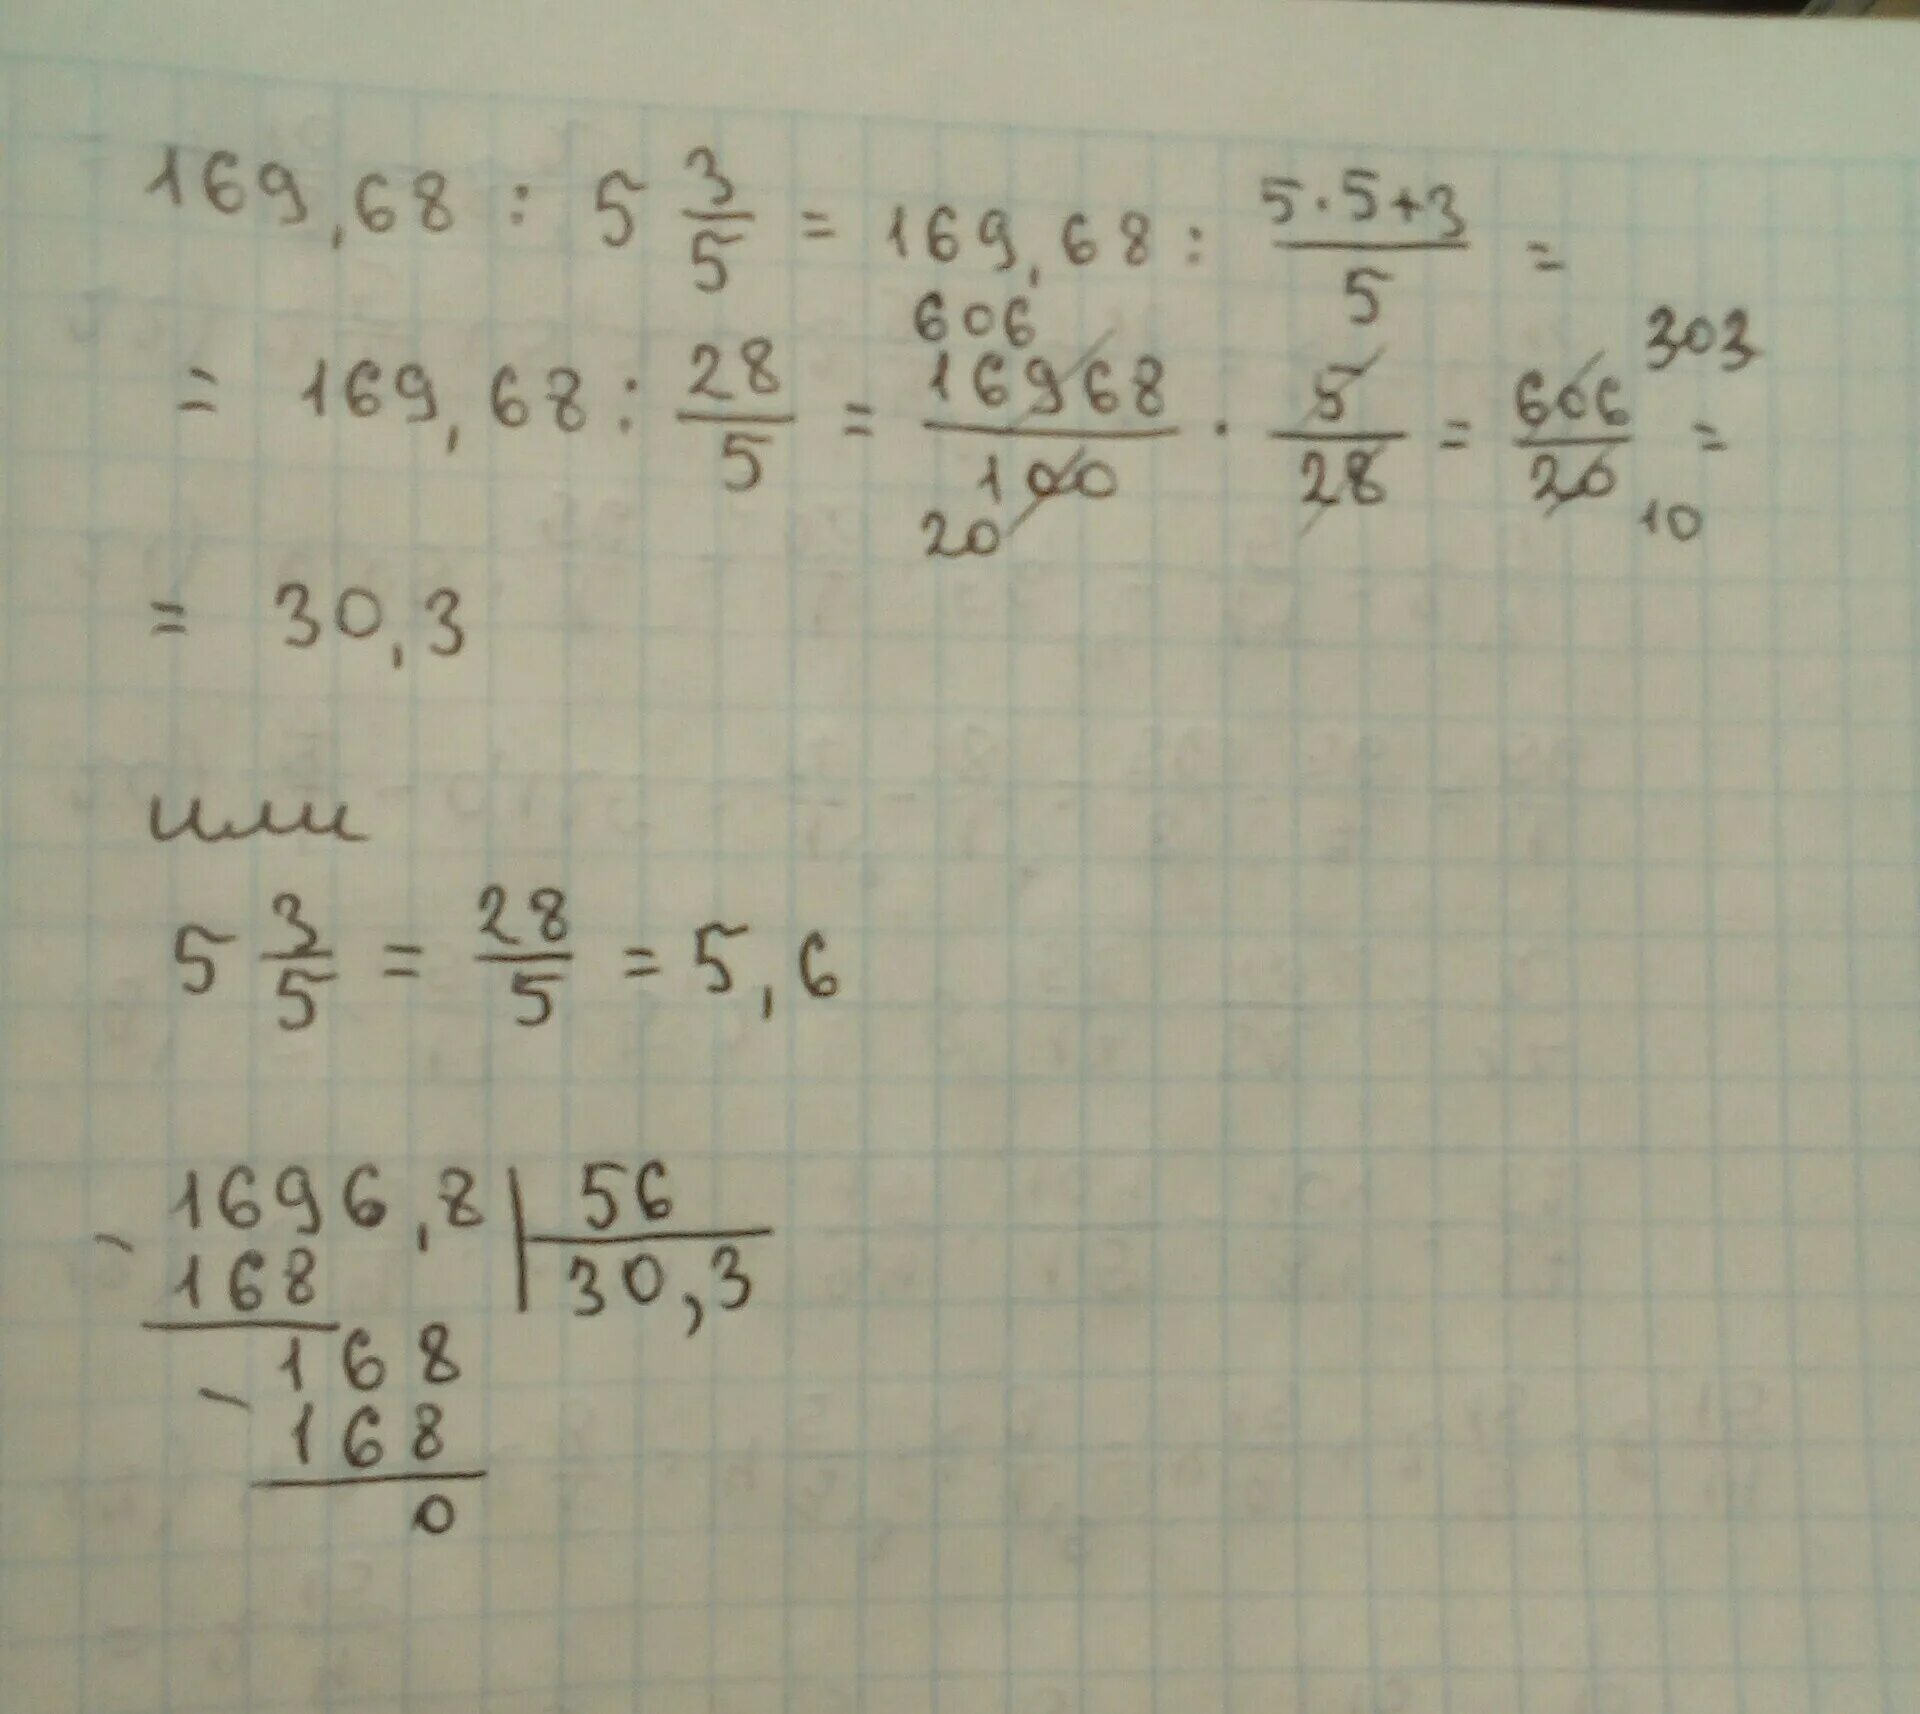 169,68 : 5 3/5 = 169,68 : (5·5+3)/5 =
606 303
= 169,68 : 28/5 = 16968/100 · 5/28 = 606/20 =
20 10
= 30,3
или
5 3/5 = 28/5 = 5,6
- 1696,8 | 56
168 | 30,3
168
- 168
0